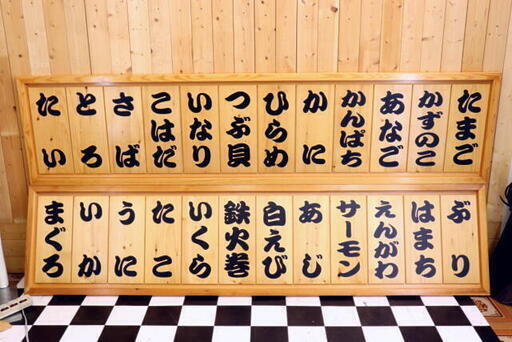 たまご
かずのこ
あなご
かんぱち
かに
ひらめ
つぶ貝
いなり
こはだ
さば
とろ
たい
ぶり
はまち
えんがわ
サーモン
あじ
白えび
鉄火巻
いくら
たこ
うに
いか
まぐろ